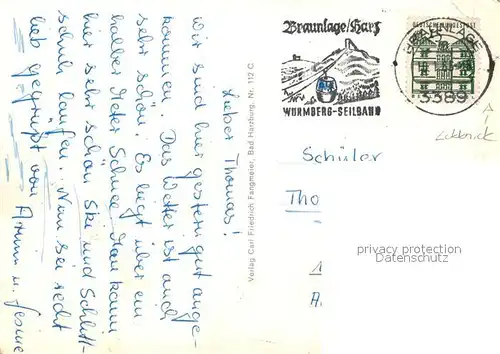 Lieber Thomas!
Wir sind hier gestern gut ange-
kommen. Das Wetter ist auch
sehr schön. Es liegt über ein
halber Meter Schnee. Man kann
hier sehr schön Ski und Schlitt-
schuh laufen. Nun sei recht
lieb gegrüßt von Armin u. Gesine
Verlag: Carl Friedrich Fangmeier, Bad Harzburg, Nr. 112 C
Braunlage/Harz
WURMBERG-SEILBAHN
DEUTSCHE BUNDESPOST
BRAUNLAGE
3389
Schüler
Tho
A.
privacy protection
Datenschutz